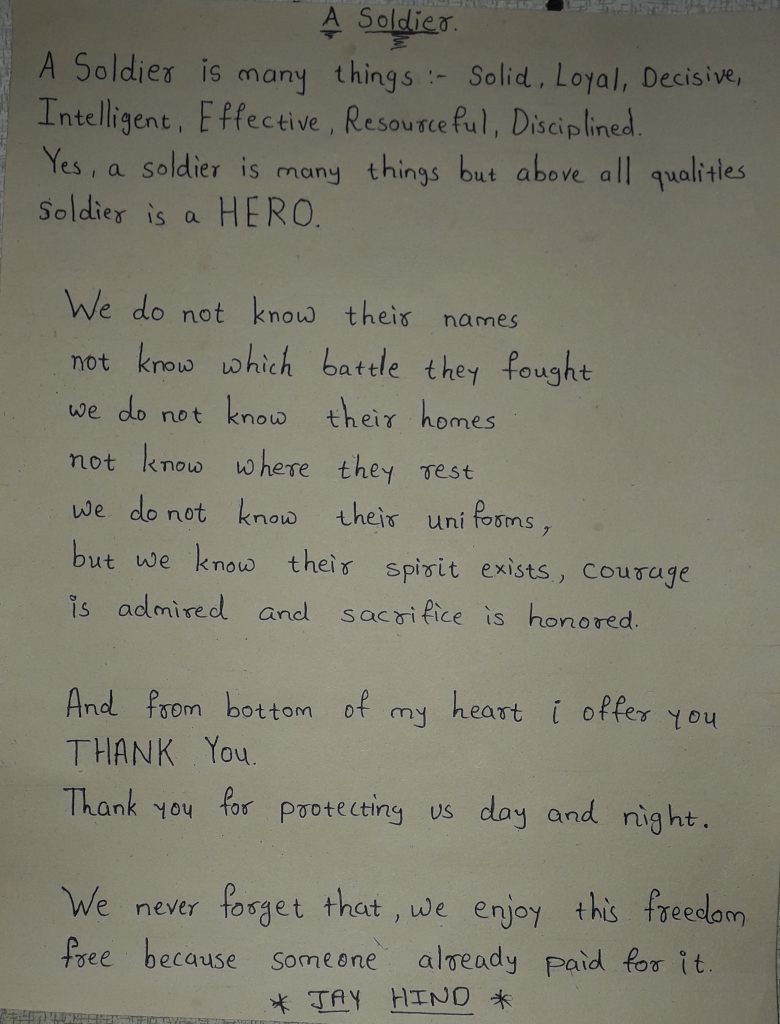 A Soldier.
A Soldier is many things :- Solid, Loyal, Decisive,
Intelligent, Effective, Resourceful, Disciplined.
Yes, a soldier is many things but above all qualities
Soldier is a HERO.
We do not know their names
not know which battle they fought
we do not know their homes
not know where they rest
we do not know their uniforms,
but we know their spirit exists, courage
is admired and sacrifice is honored.
And from bottom of my heart i offer you
THANK You.
Thank you for protecting us day and night.
We never forget that, we enjoy this freedom
free because someone already paid for it.
* JAY HIND *